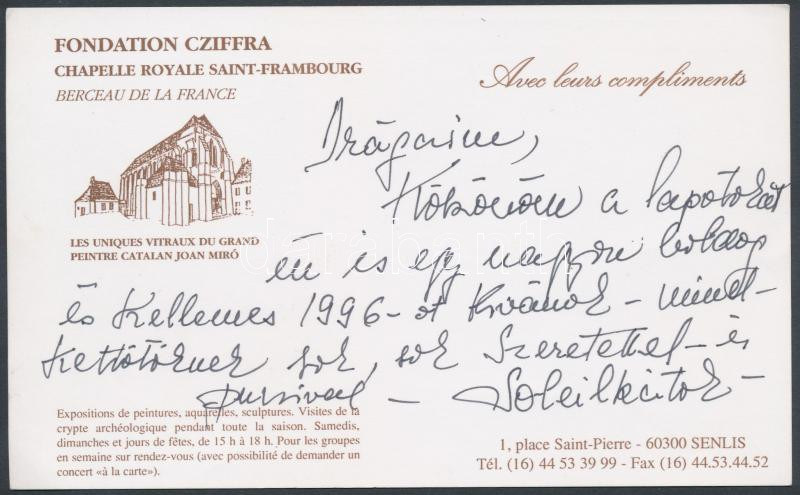 FONDATION CZIFFRA
CHAPELLE ROYALE SAINT-FRAMBOURG
BERCEAU DE LA FRANCE
Avec leurs compliments
LES UNIQUES VITRAUX DU GRAND
PEINTRE CATALAN JOAN MIRÓ
Drágaim,
a lapotokat
én is egy nagyon boldog
és Kellemes 1996-ot Kívánok - mind-
Kettőtöknek sok, sok Szeretettel - és
- Soleilkátok -
Expositions de peintures, aquarelles, sculptures. Visites de la
crypte archéologique pendant toute la saison. Samedis,
dimanches et jours de fêtes, de 15 h à 18 h. Pour les groupes
en semaine sur rendez-vous (avec possibilité de demander un
concert «à la carte»).
1, place Saint-Pierre - 60300 SENLIS
Tél. (16) 44 53 39 99 - Fax (16) 44.53.44.52
darabanth